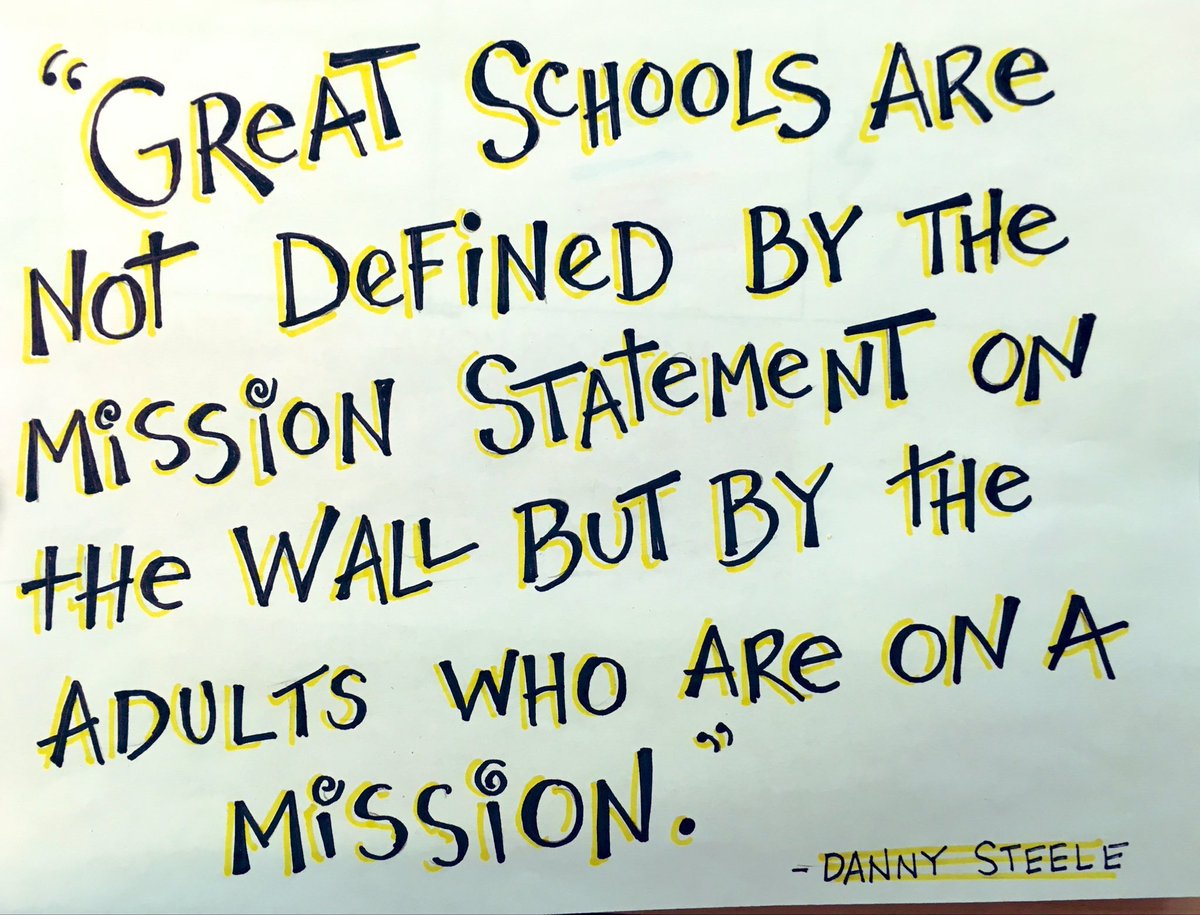 "GReAT SCHOOLS ARe
NOt DeFiNeD BY THe
MiSSiON STAteMeNT ON
tHe WALL BUT BY tHe
ADULTS WHO ARe ON A
MiSSiON."
- DANNY STEELE